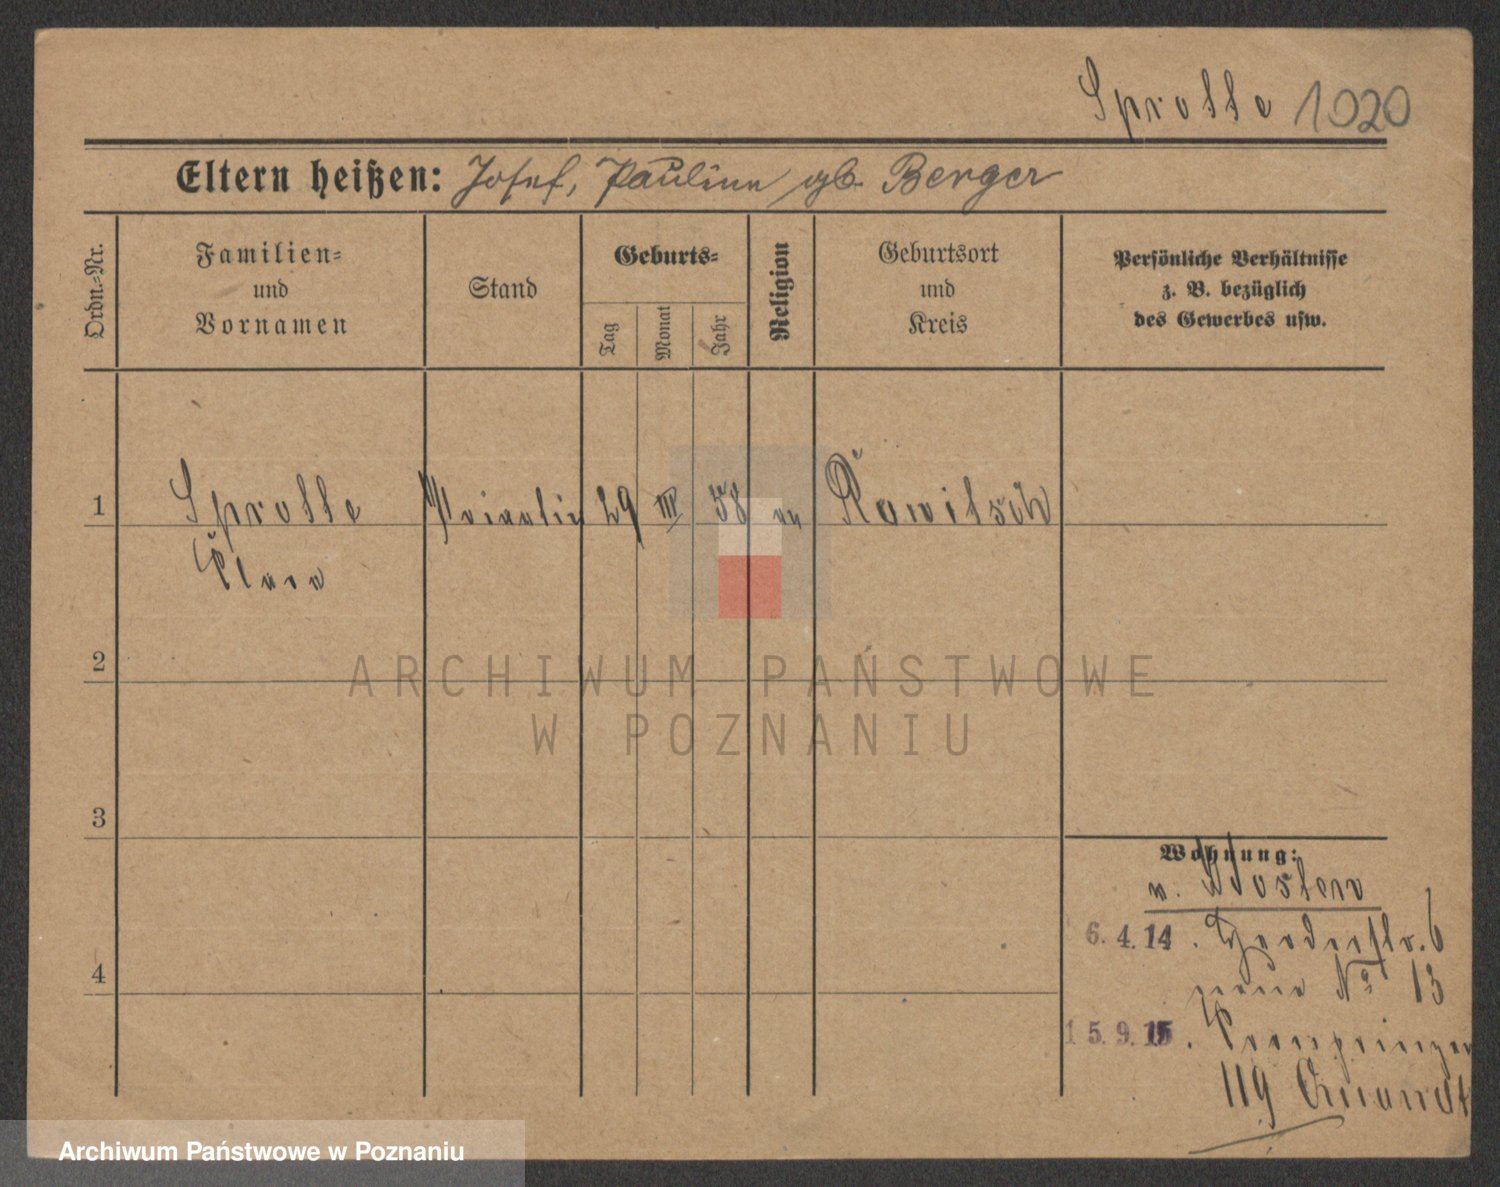 Sprotte 1020
Eltern heißen: Josef, Pauline gb. Berger
Ordn.-Nr.
Familien=
und
Vornamen
Stand
Geburts=
Tag
Monat
Jahr
Religion
Geburtsort
und
Kreis
Persönliche Verhältnisse
z. B. bezüglich
des Gewerbes usw.
1 Sprotte 29 III 58 ev Rawitsch
Clara
2
3
4
ARCHIWUM PAŃSTWOWE
W POZNANIU
Wohnung:
v.
6. 4. 14. 6
neue No 13
15. 9. 15. Kronprinzen
119
Archiwum Państwowe w Poznaniu